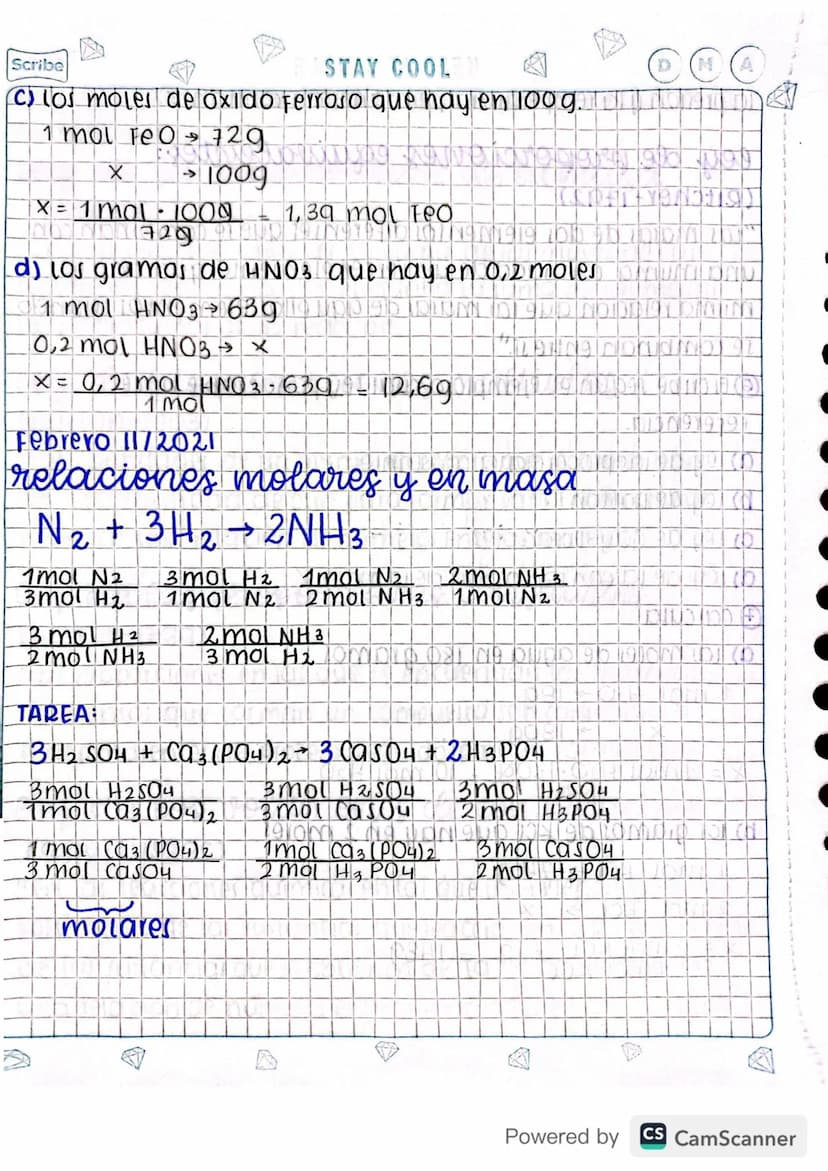 Scribe
STAY COOL
D M A
c) los moles de óxido ferroso que hay en 100g.
1 mol FeO → 72g
x → 100g
x = 1mol · 100g / 72g = 1,39 mol FeO
d) los gramos de HNO3 que hay en 0,2 moles
1 mol HNO3 → 63g
0,2 mol HNO3 → x
x = 0,2 mol HNO3 · 63g / 1mol = 12,6g
Febrero 11/2021
relaciones molares y en masa
N2 + 3H2 → 2NH3
1mol N2 / 3mol H2 3mol H2 / 1mol N2 1mol N2 / 2mol NH3 2mol NH3 / 1mol N2
3 mol H2 / 2mol NH3 2mol NH3 / 3 mol H2
TAREA:
3H2SO4 + Ca3(PO4)2 → 3CaSO4 + 2H3PO4
3mol H2SO4 / 1mol Ca3(PO4)2 3mol H2SO4 / 3mol CaSO4 3mol H2SO4 / 2mol H3PO4
1 mol Ca3(PO4)2 / 3 mol CaSO4 1mol Ca3(PO4)2 / 2mol H3PO4 3mol CaSO4 / 2mol H3PO4
molares
Powered by CS CamScanner